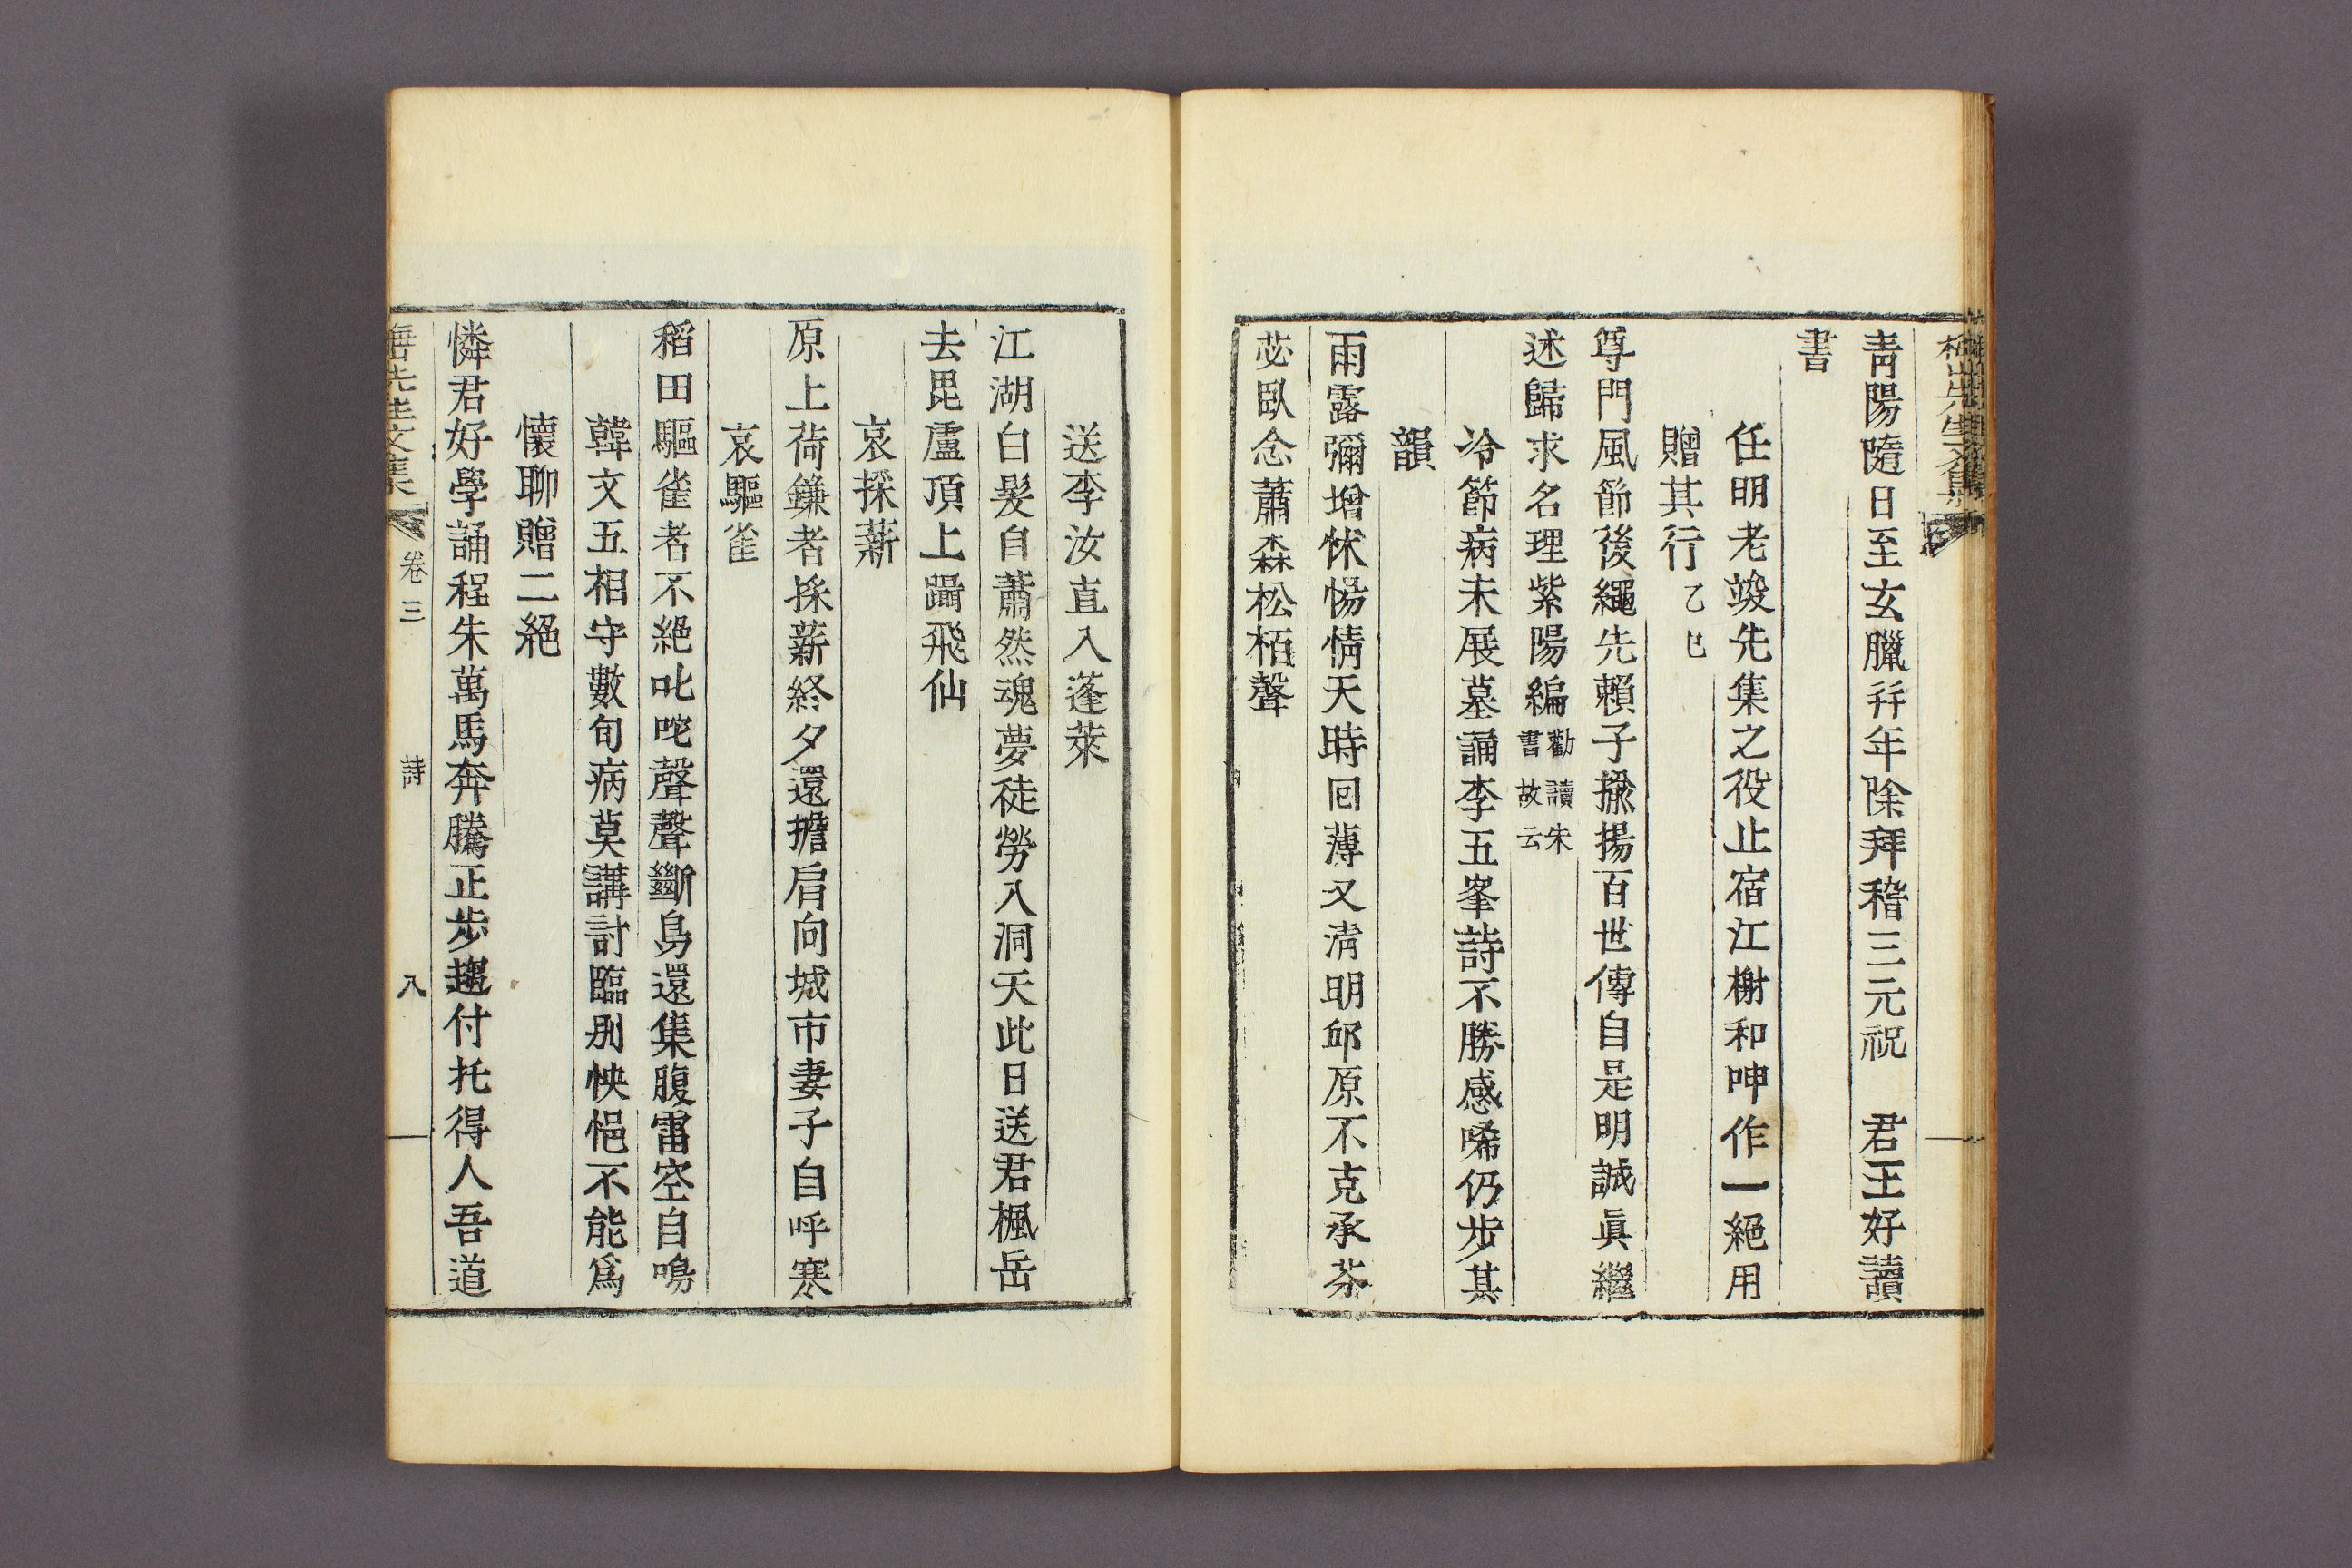 靑陽隨日至玄臘幷年除拜稽三元祝 君王好讀
書
任明老竣先集之役止宿江榭和呻作一絕用
贈其行乙巳
尊門風節後繩先賴子揄揚百世傳自是明誠眞繼
述歸求名理紫陽編勸讀朱書故云
冷節病未展墓誦李五峯詩不勝感唏仍步其
韻
雨露彌增怵惕情天時回薄又淸明邱原不克承芬
苾臥念蕭森松栢聲
送李汝直入蓬萊
江湖白髮自蕭然魂夢徒勞入洞天此日送君楓岳
去毘盧頂上躡飛仙
哀採薪
原上荷鎌者採薪終夕還擔肩向城市妻子自呼寒
哀驅雀
稻田驅雀者不絕叱咜聲聲斷鳥還集腹雷空自鳴
韓文五相守數旬病莫講討臨別怏悒不能爲
懷聊贈二絕
憐君好學誦程朱萬馬奔騰正步趨付托得人吾道
先生文集 卷三 詩 八